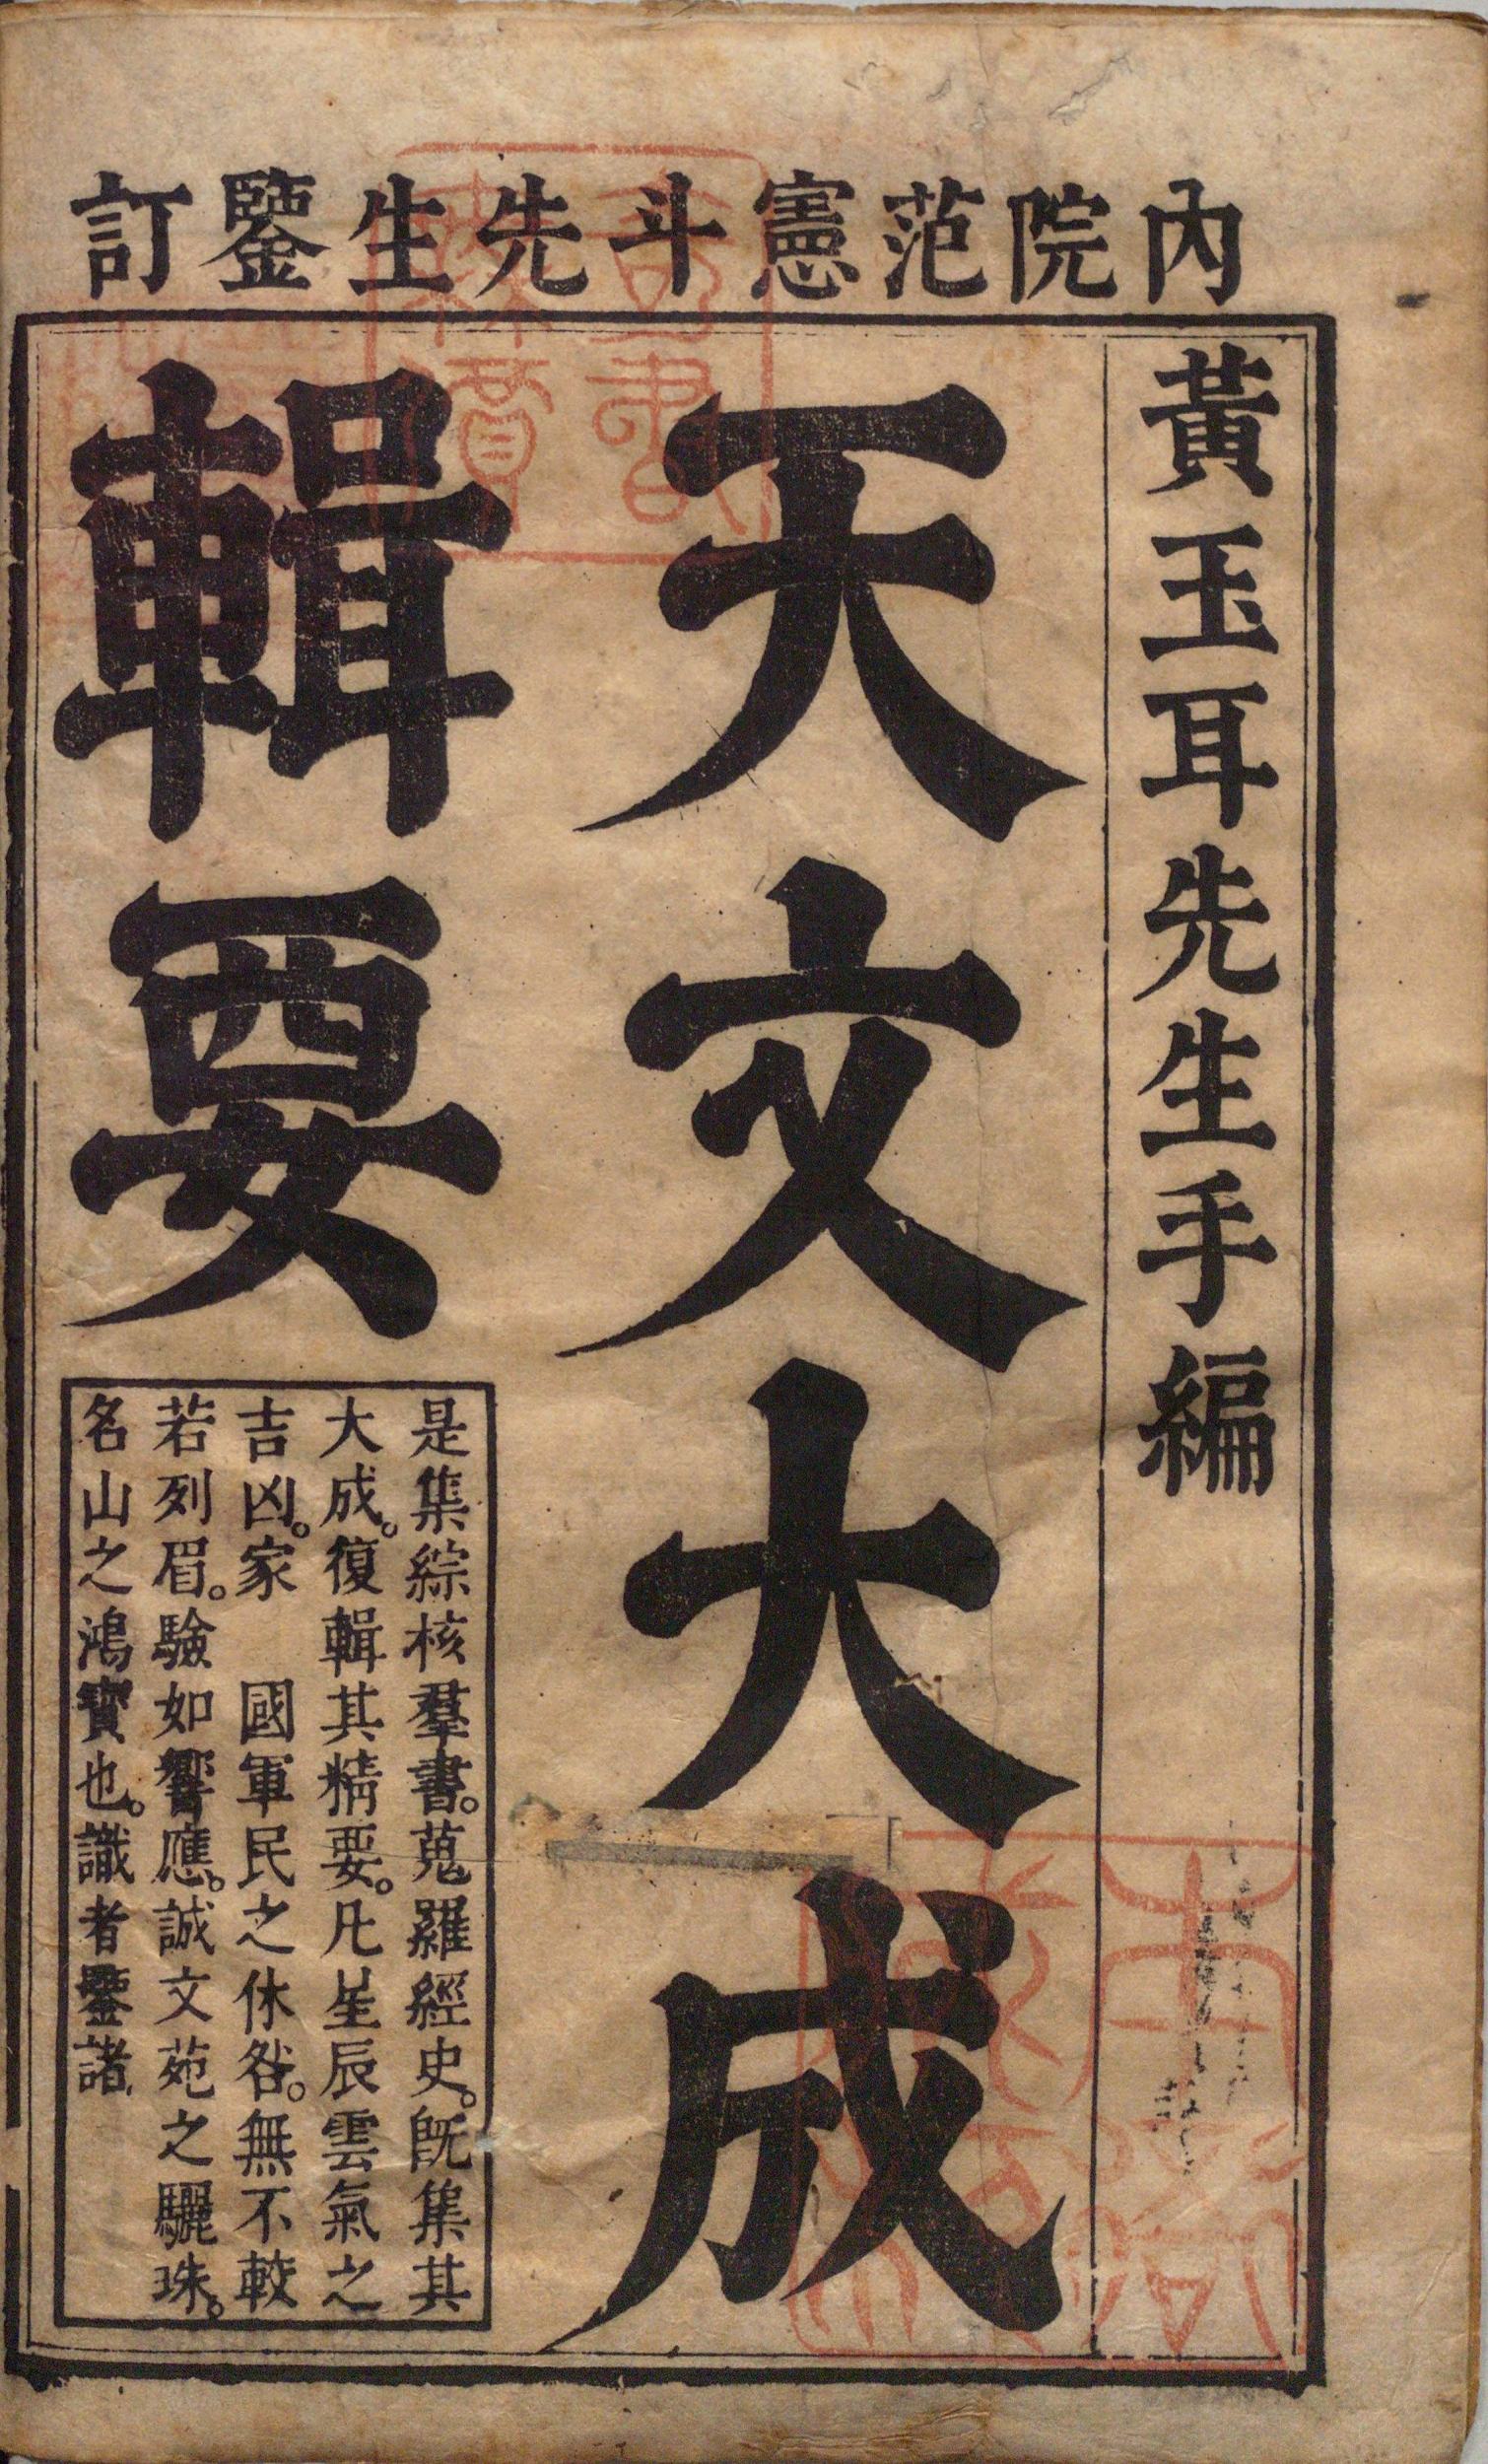 內院范憲斗先生鑒訂
黃玉耳先生手編
天文大成
輯要
是集綜核羣書。蒐羅經史。旣集其
大成。復輯其精要。凡星辰雲氣之
吉凶。家　國軍民之休咎。無不較
若列眉。驗如響應。誠文苑之驪珠。
名山之鴻寶也。識者鑒諸